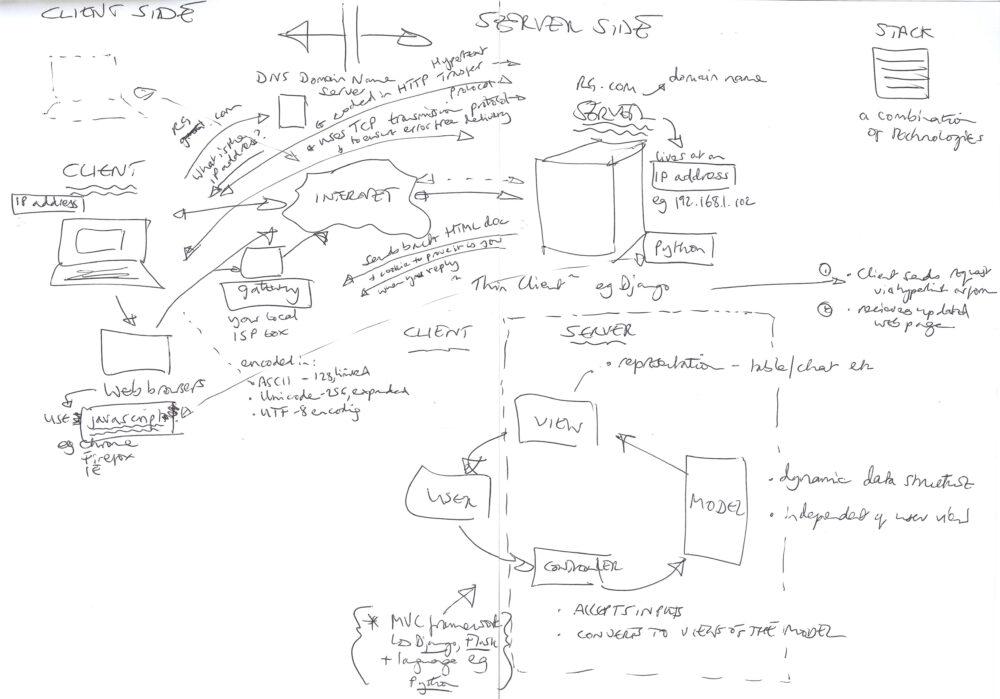 CLIENT SIDE
SERVER SIDE
STACK
a combination
of technologies
DNS Domain Name
Server
Hypertext
coded in HTTP Transfer
Protocol
uses TCP transmission protocol
to ensure error free delivery
RG .com
What is the
IP address?
RG.com
domain name
SERVER
lives at an
IP address
eg 192.168.1.102
Python
CLIENT
IP address
INTERNET
gateway
your local
ISP box
sends back HTML doc
+ cookie to prove it is you
when you reply
Thin Client
eg Django
1
Client sends request
via hyperlink or form
2
recieves updated
web page
Web browsers
USES
javascript
eg chrome
Firefox
IE
encoded in:
ASCII - 128, limited
Unicode - 256, expanded
UTF-8 encoding
CLIENT
SERVER
representation - table/chat etc
VIEW
USER
MODEL
dynamic data structure
independent of user view
CONTROLLER
ACCEPTS INPUTS
CONVERTS TO VIEWS OF THE MODEL
* MVC framework
Django, Flask
+ language eg
Python